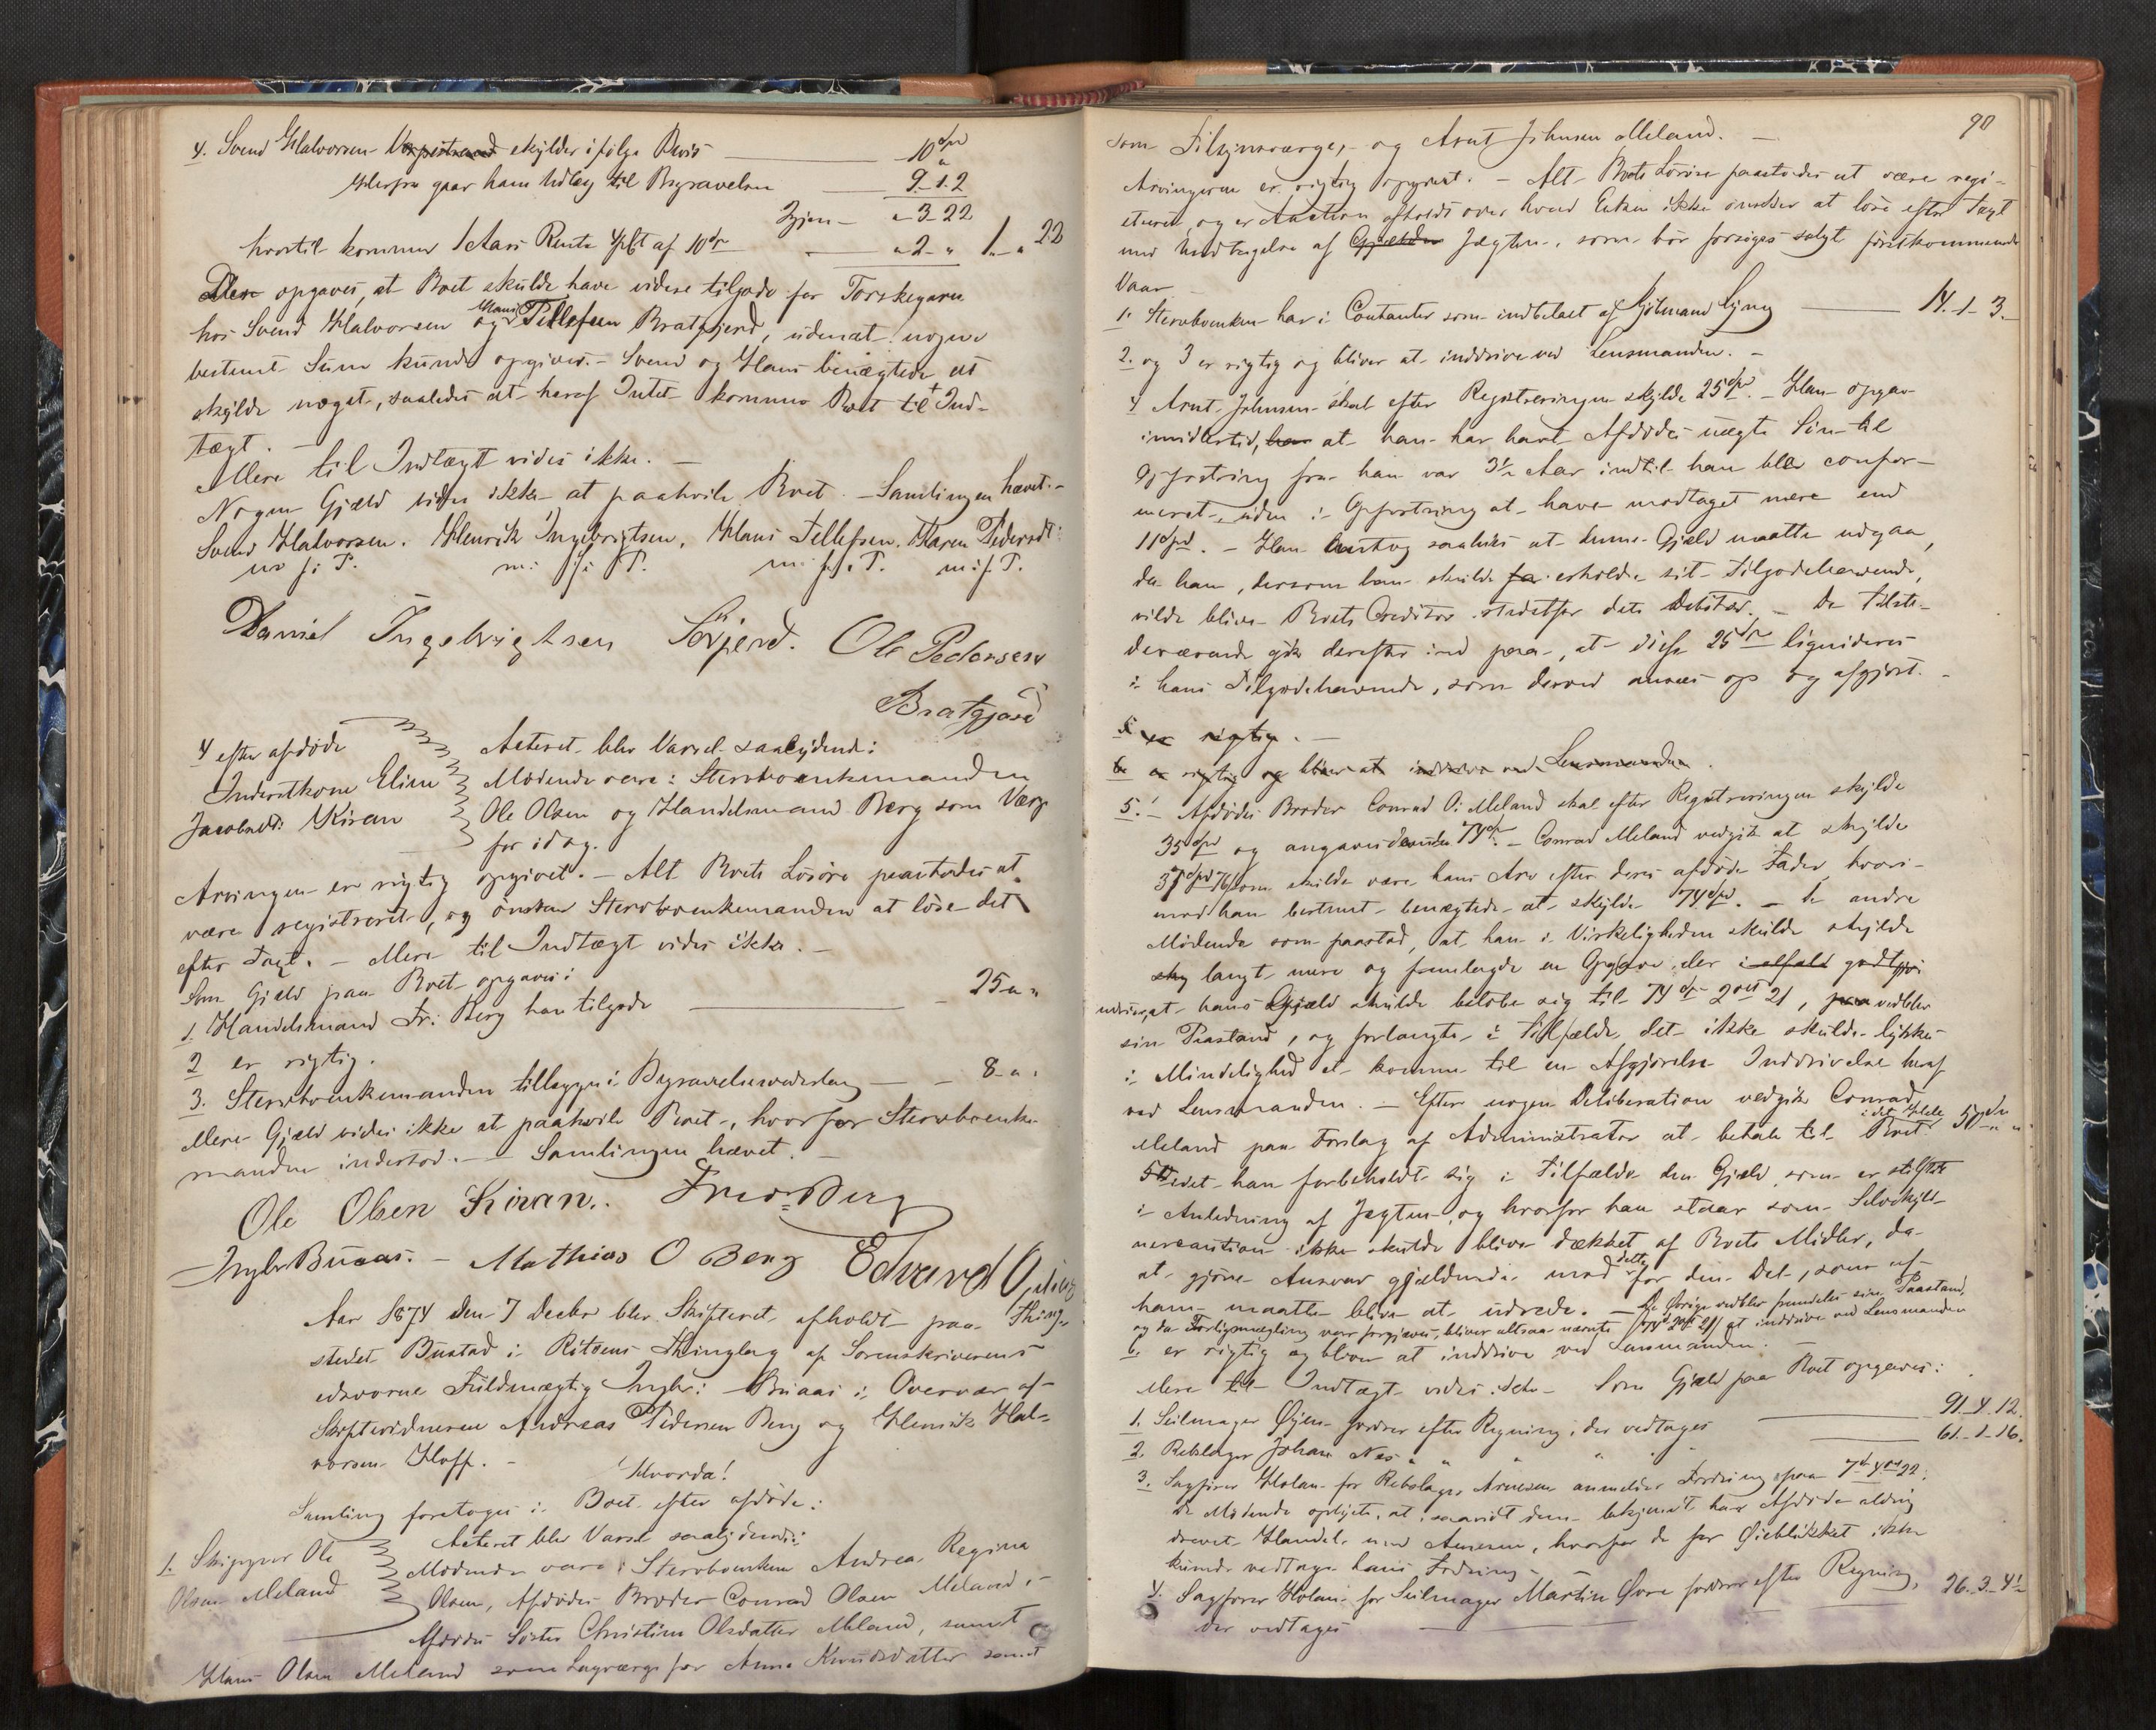 4. Svend Halvorsen skylder ifølge Bevis 10 Spd "
Herfra gaar hans Udlæg til Begravelsen 9-1-2
Igjen - "-3-22
hvortil kommer 1 Aars Rente 4pCt af 10 Spd "-2-" 1-"-22
Der opgaves, at Boet skulde have videre tilgode for Torskegarn
hos Svend Halvorsen og Hans Tellefsen Bratgjerd, uden at nogen
bestemt Sum kunde opgives. - Svend og Hans benægtede at
skylde noget, saaledes at heraf Intet kommer Boet til Ind-
tægt. -
Mere til Indtægt vides ikke. -
Nogen Gjæld vides ikke at paahvile Boet. - Samlingen hævet. -
Svend Halvorsen. Henrik Ingebrigtsen, Hans Tellefsen. Karen Pedersdt:
m. f. P. m: f: P. m: f. P. m: f. P.
Daniel Ingebrigtsen Ole Pedersen
Bratgjerd
4 efter afdøde
Inderstkone Elen
Jacobsdt: Kiran
Acteret blev Varsel saalydende:
Mødende vare: Stervboenkemanden
Ole Olsen og Handelsmand Berg som Værge
for idag.
Arvingen er rigtig opgivet. - Alt Boets Løsøre paastodes at
være registreret, og ønsker Stervboenkemanden at løse det
efter Taxt. - Mere til Indtægt vides ikke. -
Som Gjæld paa Boet opgaves:
1. Handelsmand Fr: Berg har tilgode - 25 " "
2 er rigtig.
3. Stervboenkemanden tillægges i Begravelsesvederlag - - 8 " "
Mere Gjæld vides ikke at paahvile Boet, hvorfor Stervboenke-
manden indestod. - Samlingen hævet. -
Ole Olsen Kiran. Fred. Berg
Ingbr Buaas. - Mathias O Berg Edvard
Aar 1874 den 7 Decbr blev Skifteret afholdt paa Thing-
stedet Bustad i Rissens Thinglag af Sorenskriverens
edsvorne Fuldmægtig Ingbr: Buaas i Overvær af
Skiftevidnerne Andreas Pedersen Berg og Henrik Hal-
vorsen Hoff. -
Hvorda!
Samling foretoges i Boet efter afdøde:
1. Skipper Ole
Olsen Meland
Acteret blev Varsel saalydende:
Mødende vare: Stervboenken Andrea Regina
Olsen, Afdødes Broder Conrad Olsen Meland, -
Afdødes Søster Christine Olsdatter Meland, samt
Hans Olsen Meland som Lagværge for Anne Knudsdatter samt
90
som Tilsynsværge, og Arnt Johnsen Meland. -
Arvingerne er rigtig opgivet. - Alt Boets Løsøre paastodes at være regi-
streret, og er Auction afholdt over hvad Enken ikke ønsker at løse efter Taxt
med Undtagelse af Jægten, som bør forsøges solgt førstkommende
Vaar -
1. Stervboenken har i Contanter som indbetalt af 14-1-3.
2. og 3 er rigtig og bliver at inddrive ved Lensmanden. -
4 Arnt Johnsen skal efter Registreringen skylde 25 Spd. - Han opgav
imidlertid, at han har havt Afdødes uægte Søn til
Opfostring fra han var 3½ Aar indtil han blev confir-
meret, uden i Opfostring at have modtaget mere end
11 Spd. - Han antog saaledes at denne Gjæld maatte udgaa,
da han, dersom han skulde erholde sit Tilgodehavende,
vilde blive Boets Creditor istedetfor dets Debitor. - De Tilste-
deværende gik derefter ind paa, at disse 25 Spd liquideres
i hans Tilgodehavende, som derved ansees op og afgjort. -
5 er rigtig. -
6 er rigtig og bliver at inddrive ved Lensmanden.
5. - Afdødes Broder Conrad O: Meland skal efter Registreringen skylde
35 Spd og angaves desuden 74 Spd. - Conrad Meland vedgik at skylde
som skulde være hans Arv efter deres afdøde Fader, hvori-
mod han bestemt benægtede at skylde 74 Spd. - De andre
Mødende som paastod, at han i Virkeligheden skulde skylde
langt mere og fremlagde en Opgave, der
udviser, at hans Gjæld skulde beløbe sig til 74 Spd 2 ort 21, vedblev
sin Paastand, og forlangte i Tilfælde det ikke skulde lykkes
i Mindelighed at komme til en Afgjørelse Inddrivelse heraf
ved Lensmanden. - Efter nogen Deliberation vedgik Conrad
Meland paa Forslag af Administrator at betale til Boet i det Hele 50 Spd " "
idet han forbeholdt sig i Tilfælde den Gjæld, som er stiftet
i Anledning af Jægten, og hvorfor han staar som Selvskyld-
nercaution ikke skulde blive dækket af Boets Midler, da
at gjøre Ansvar gjældende mod dette for den Del, som af
ham maatte blive at udrede. - De Øvrige vedblev fremdeles sin Paastand,
og da Forligsmægling var forgjæves, bliver altsaa nævnte (74 Spd 2 ort 21) at inddrive ved Lensmanden
6. er rigtig og bliver at inddrive ved Lensmanden. -
Mere til Indtægt vides ikke - Som Gjæld paa Boet opgaves:
1. Seilmager Øyen fordrer efter Regning, der vedtages 91-4-12.
2. Rebslager Johan Næs " " " " 61-1-16.
3. Sagfører Holan for Rebslager Arnesen anmelder Fordring paa 7 Spd 4 ort 22.
De Mødende oplyste, at, saavidt dem bekjendt har Afdøde aldrig
drevet Handel med Arnesen, hvorfor de for Øieblikket ikke
kunde vedtage hans Fordring -
4. Sagfører Holan for Seilmager Martin Øvre fordrer efter Regning, 26-3-4½
der vedtages